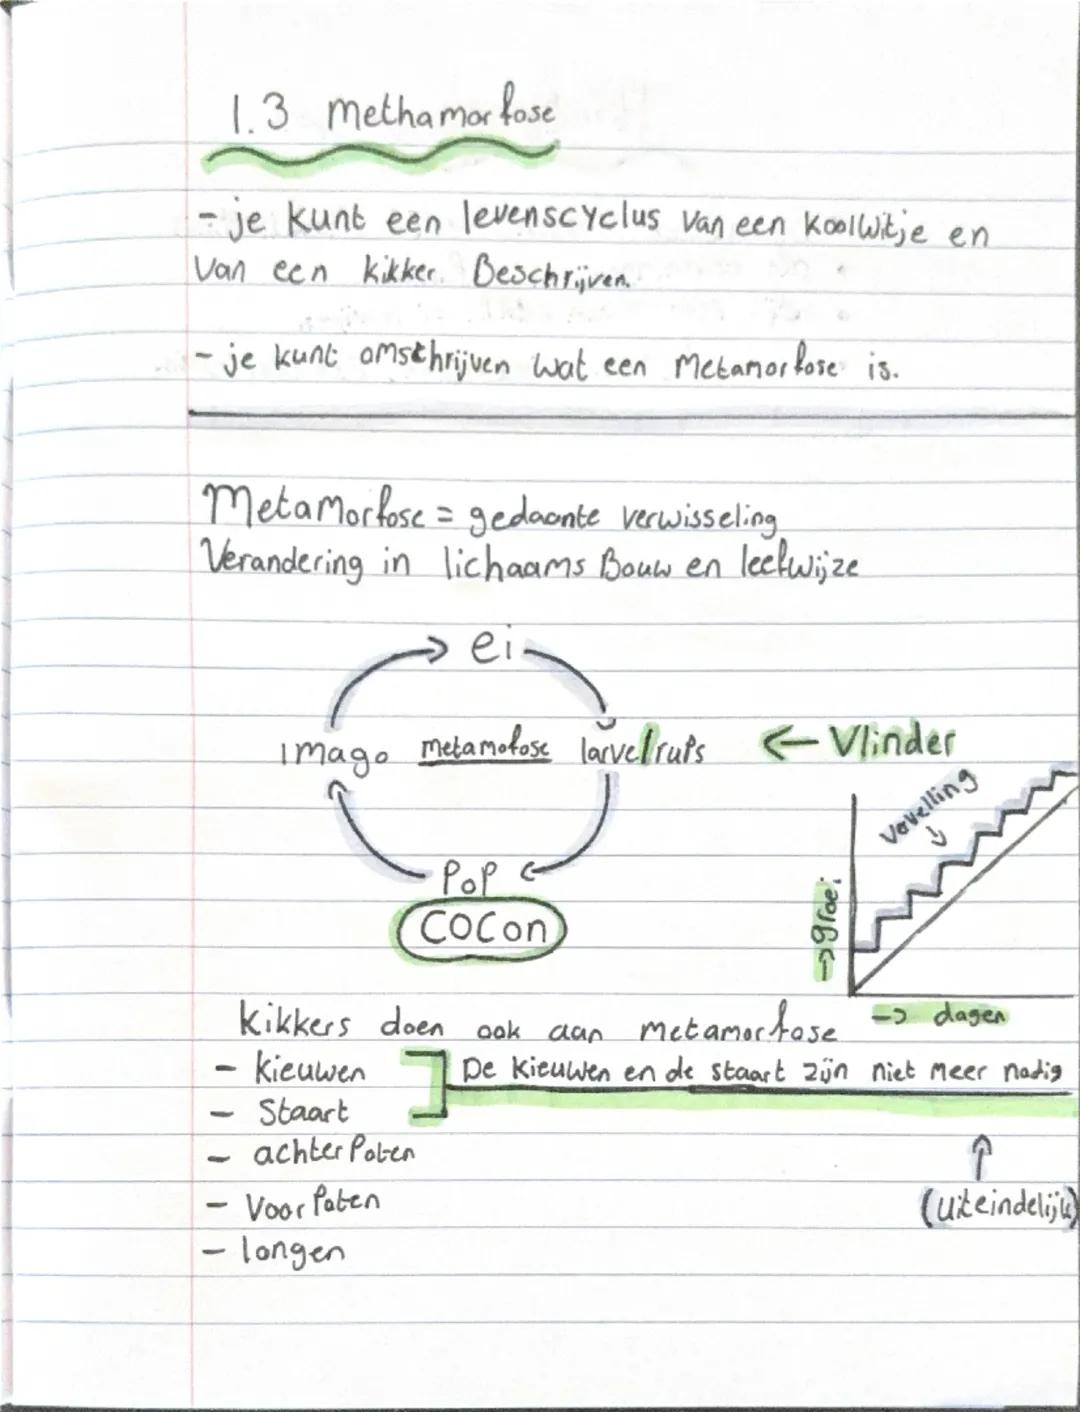 1.3 Methamorfose
- je kunt een levenscyclus van een koolwitje en
van een kikker. Beschrijven.
- je kunt omschrijven wat een Metamorfose is.
Metamorfose = gedaante verwisseling
Verandering in lichaams Bouw en leefwijze
ei
imago metamofose larve/rups ← Vlinder
Vervelling
pop
cocon
→ groei
→ dagen
Kikkers doen ook aan metamorfose
- kieuwen
De kieuwen en de staart zijn niet meer nodig
- Staart
- achterpoten
- Voorpoten
(uiteindelijk)
- longen